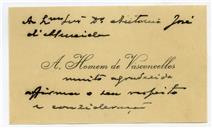 A Sua Exª Dr. António José
d'Almeida
A. Homem de Vasconcellos
muito agradecido
affirma o seu respeito
e consideração